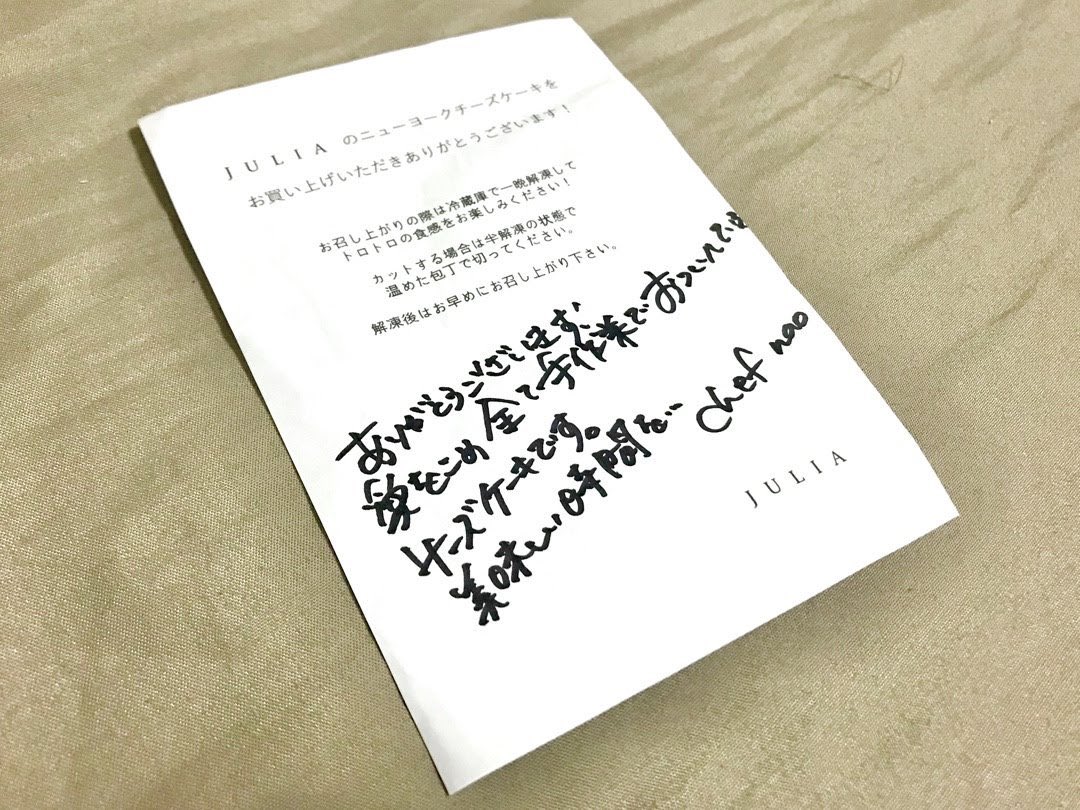 JULIA のニューヨークチーズケーキを
お買い上げいただきありがとうございます！
お召し上がりの際は冷蔵庫で一晩解凍して
トロトロの食感をお楽しみください！
カットする場合は半解凍の状態で
温めた包丁で切ってください。
解凍後はお早めにお召し上がり下さい。
ありがとうございます、
愛をこめ 全て手作業で
チーズケーキです。
美味しい時間を… chef nao
JULIA